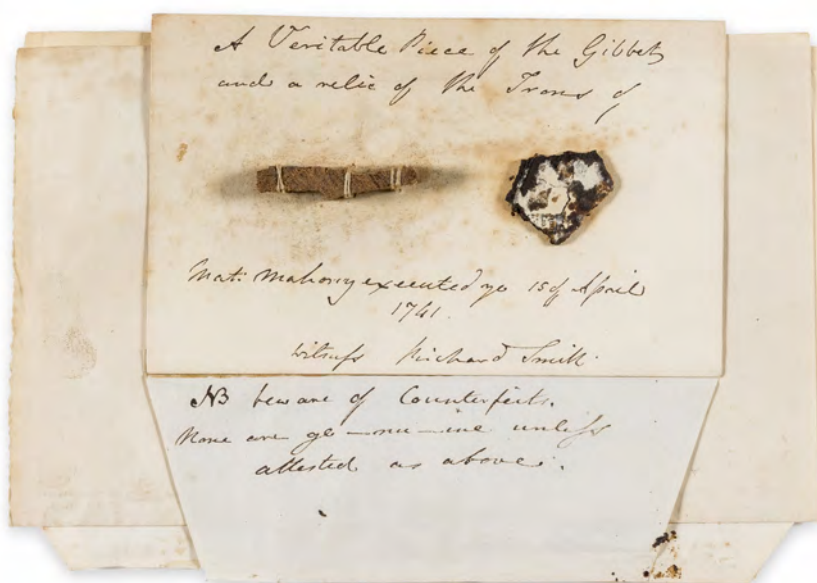 A Veritable Piece of the Gibbet
and a relic of the Irons of
Mat: Mahony executed ye 15 of April
1741.
Witness Richard Smith.
NB beware of Counterfeits.
None are ge—nu—ine unless
attested as above.